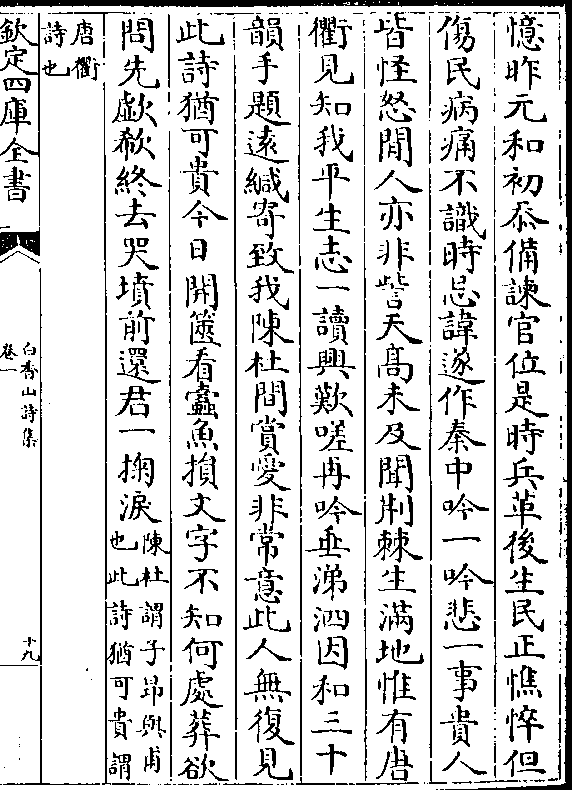 憶昨元和初忝備諫官位是時兵革後生民正憔悴但
傷民病痛不識時忌諱遂作秦中吟一吟悲一事貴人
皆怪怒閒人亦非訾天髙未及聞荆棘生滿地惟有唐
衢見知我平生志一讀興歎嗟再吟垂涕泗因和三十
韻手題遠緘寄致我陳杜間賞愛非常意此人無復見
此詩猶可貴今日開篋看蠧魚損文字不知何處葬欲
問先歔欷終去哭墳前還君一掬淚陳杜謂子昻與甫
也此詩猶可貴謂
唐衢
詩也
欽定四庫全書
白香山詩集
卷一
十九